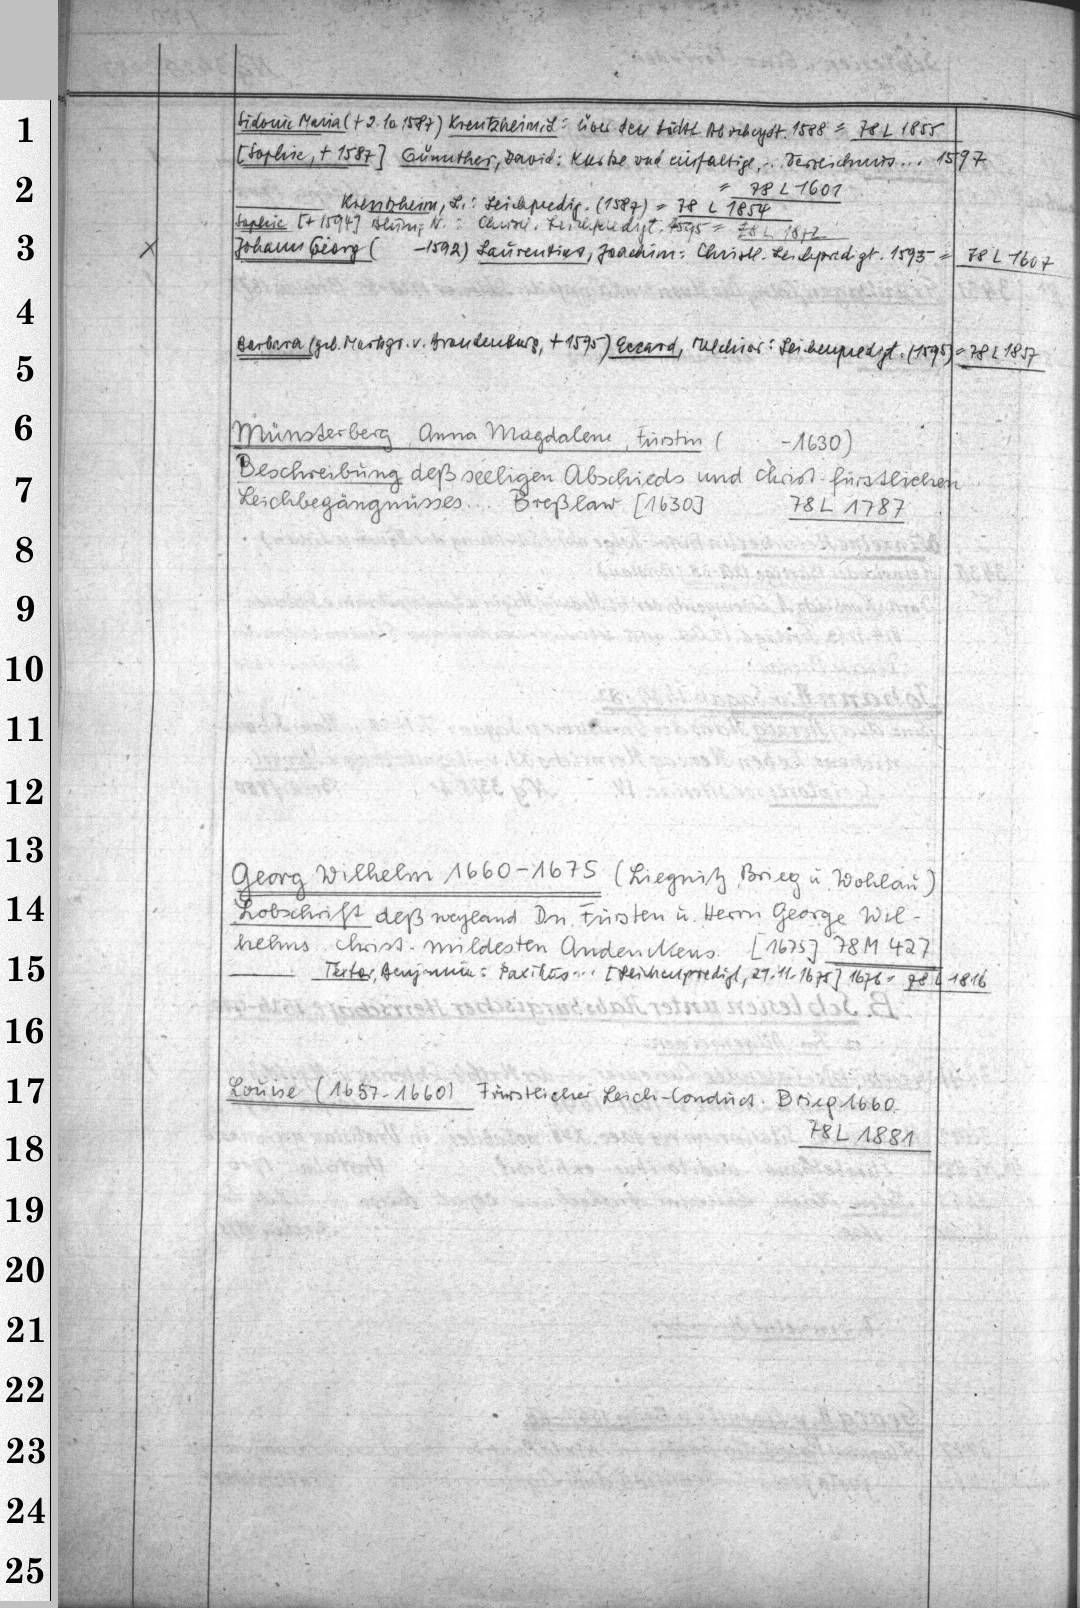 Sidonie Maria (+ 2.10 1587) Krentzheim, L: über den tödtl. Abschydt. 1588 = 78 L 1855
[Sophie, + 1587] Günnther, David: Kurtze und einfaltige... Verzeichnus... 1597
= 78 L 1601
Krentzheim, L.: Leichpredig. (1587) = 78 L 1854
Sophie [+ 1594] N.: Christl. Leichpredigt. 1595 = 78 L
x Johann Georg ( -1592) Laurentius, Joachim: Christl. Leichpredigt. 1593 = 78 L 1607
Barbara (geb. Markgr. v. Brandenburg, + 1595) Eccard, Melchior: Leichenpredigt. (1595) = 78 L 1857
Münsterberg, Anna Magdalene, Fürstin ( -1630)
Beschreibung deß seeligen Abschieds und christ-fürstlichen
Leichbegängnüsses... Breßlaw [1630] 78 L 1787
Georg Wilhelm 1660-1675 (Liegnitz, Brieg u. Wohlau)
Lobschrift deß weyland Dn. Fürsten u. Herrn George Wil-
helms christ-mildesten Andenckens. [1675] 78 M 427
Textor, Benjamin: ... [Leichenpredigt, 21.11.1675] 1676 = 78 L 1816
Louise (1657-1660) Fürstlicher Leich-Conduct. Brieg 1660.
78 L 1881
1
2
3
4
5
6
7
8
9
10
11
12
13
14
15
16
17
18
19
20
21
22
23
24
25